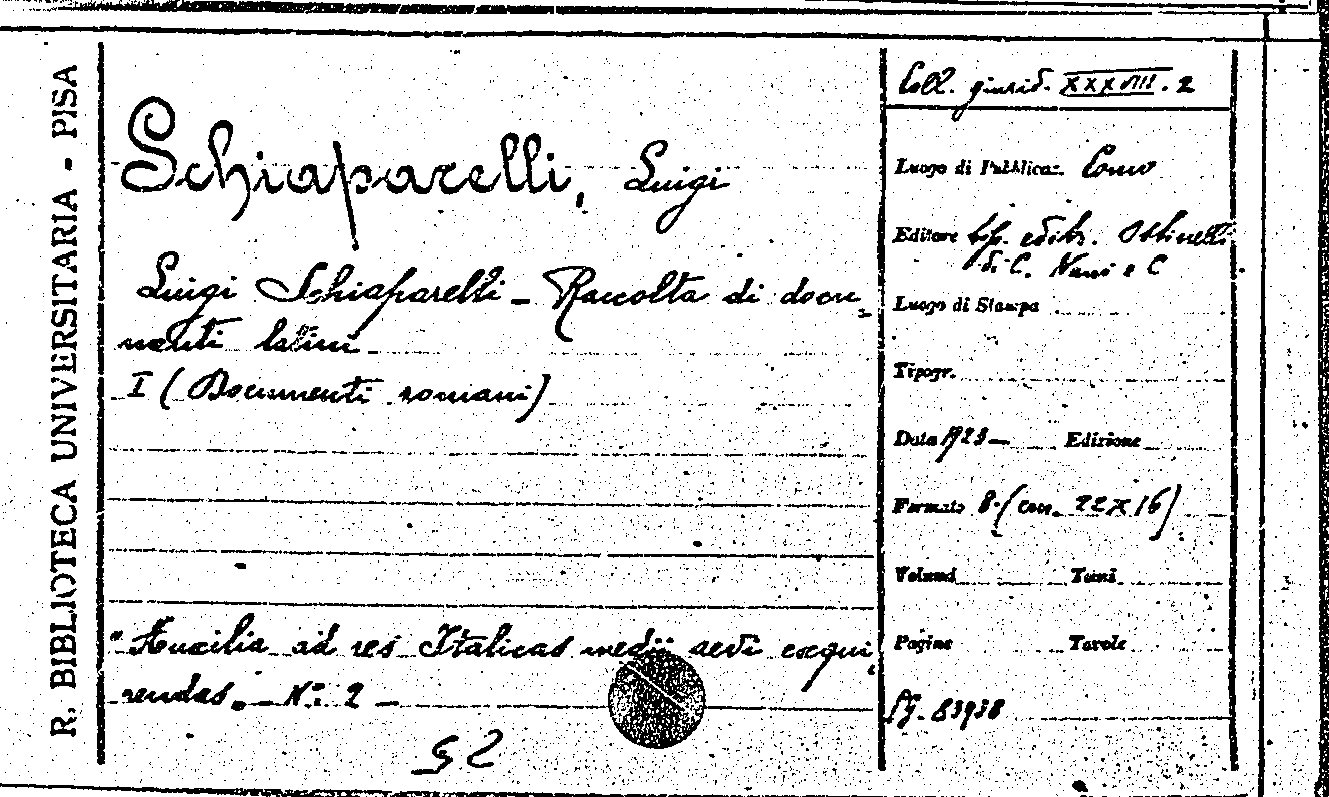 R. BIBLIOTECA UNIVERSITARIA - PISA
Schiaparelli, Luigi
Luigi Schiaparelli - Raccolta di docu=
menti latini
I (Documenti romani)
"Auxilia ad res Italicas medii aevi exqui
rendas. - N.° 2 -
Coll. giurid. XXXVIII. 2
Luogo di Pubblicaz. Como
Editore tip. editr. Ostinelli
di C. Nani e C
Luogo di Stampa
Tipogr.
Data 1923- Edizione
Formato 8.° (cm. 22x16)
Volumi Tomi
Pagine Tavole
83938